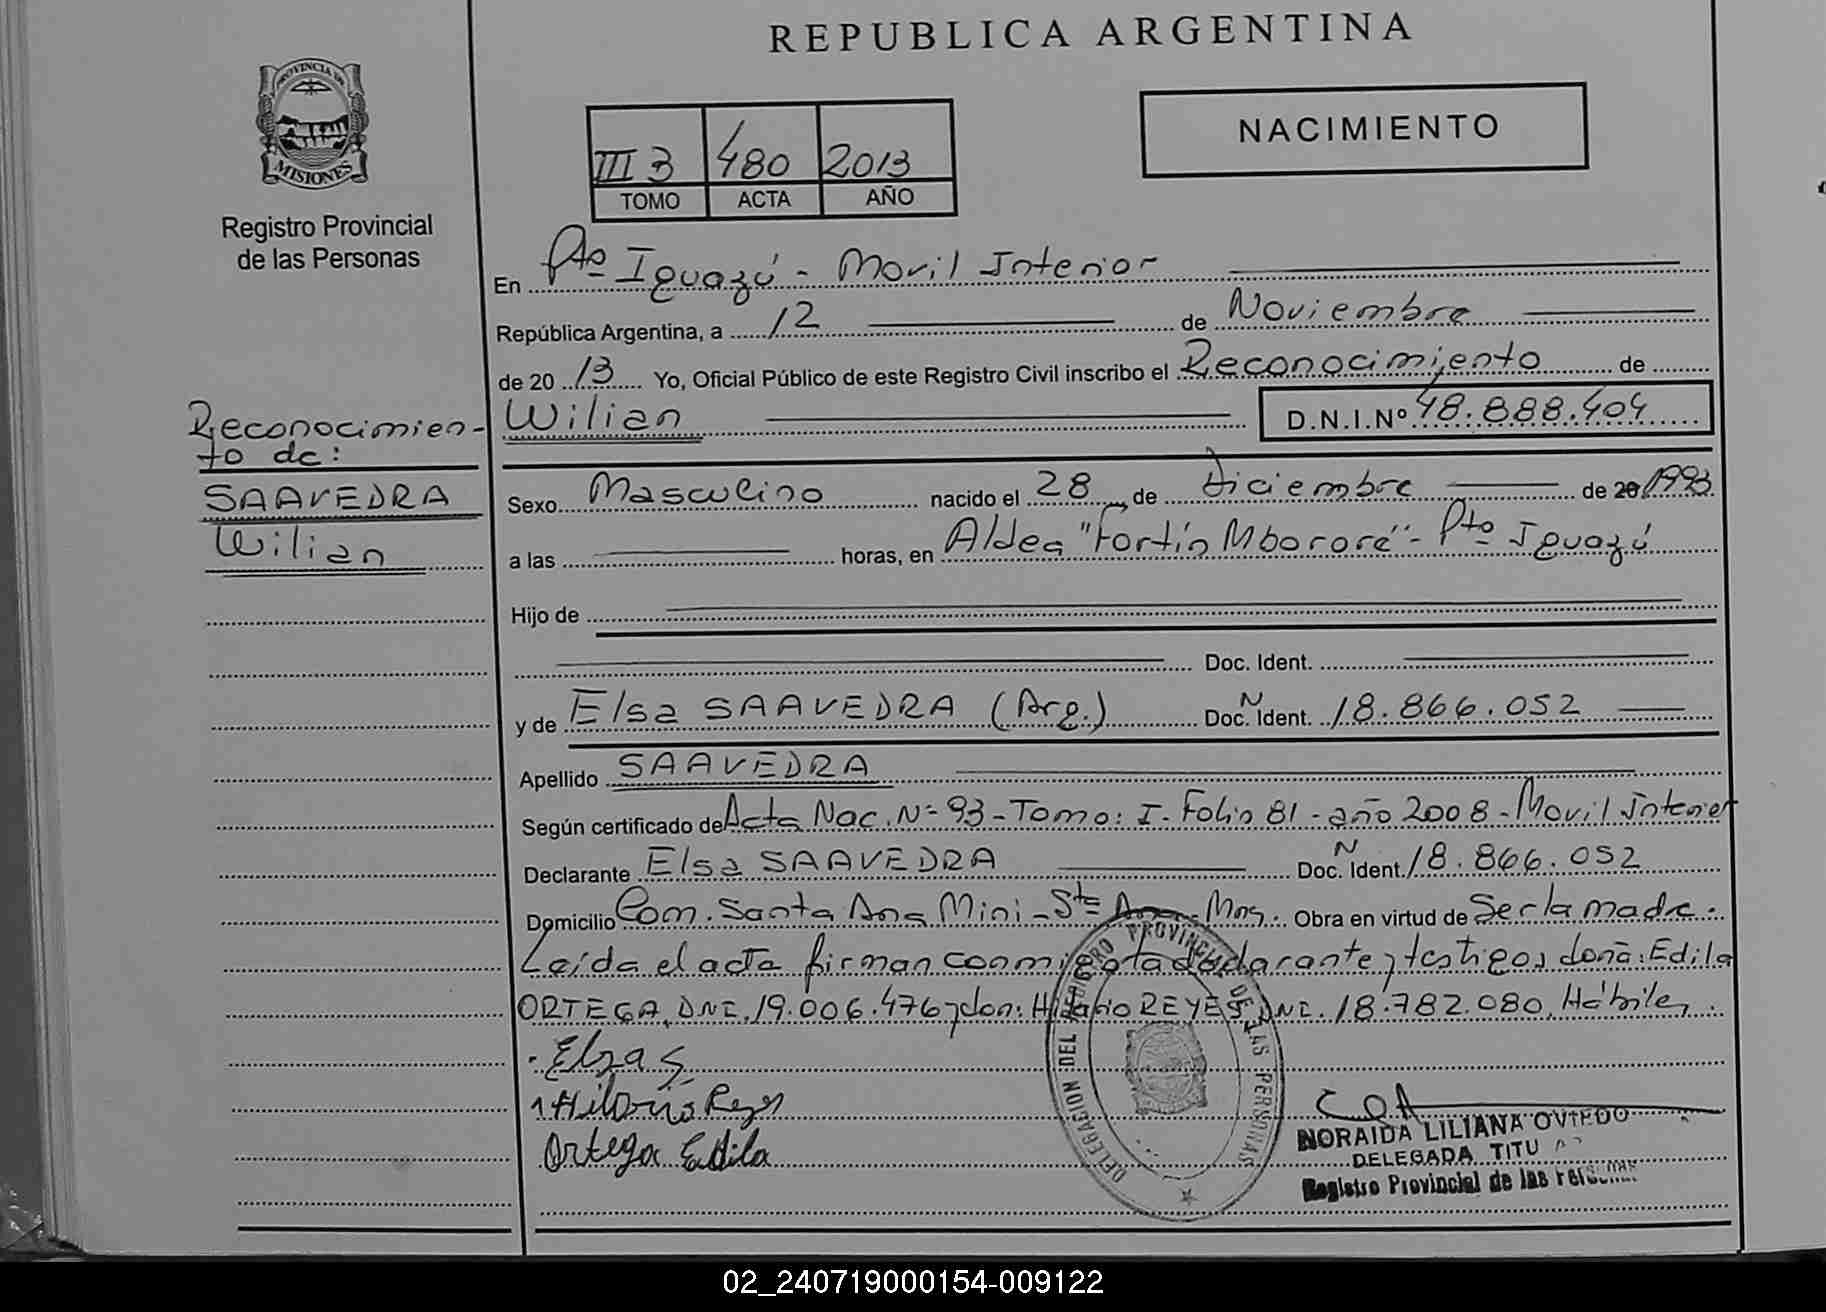 REPUBLICA ARGENTINA
PROVINCIA DE
MISIONES
Registro Provincial
de las Personas
III 3 480 2013
TOMO ACTA AÑO
NACIMIENTO
En Pto Iguazú - Movil Interior
República Argentina, a 12 de Noviembre
de 20 13 Yo, Oficial Público de este Registro Civil inscribo el Reconocimiento de
Wilian D.N.I.Nº 48.888.404
Reconocimien-
to de:
SAAVEDRA
Wilian
Sexo Masculino nacido el 28 de Diciembre de 20 1993
a las horas, en Aldea "Fortín Mbororé" - Pto Iguazú
Hijo de
Doc. Ident.
y de Elsa SAAVEDRA (Arg.) Doc. N Ident. 18.866.052
Apellido SAAVEDRA
Según certificado de Acta Nac. Nº 93 - Tomo: I - Folio 81 - año 2008 - Movil Interior
Declarante Elsa SAAVEDRA Doc. N Ident. 18.866.052
Domicilio Com. Santa Ana Mini - Sta Ana - Mns. Obra en virtud de Ser la madre.
Leída el acta firman conmigo la declarante y testigos doña: Edila
ORTEGA, DNI. 19.006.476 y don: Hilario REYES, DNI. 18.782.080, Hábiles.
Elsa S
Hilario Reyes
Ortega Edila
DELEGACION DEL REGISTRO PROVINCIAL DE LAS PERSONAS
NORAIDA LILIANA OVIEDO
DELEGADA TITU
Registro Provincial de las Personas
02_240719000154-009122